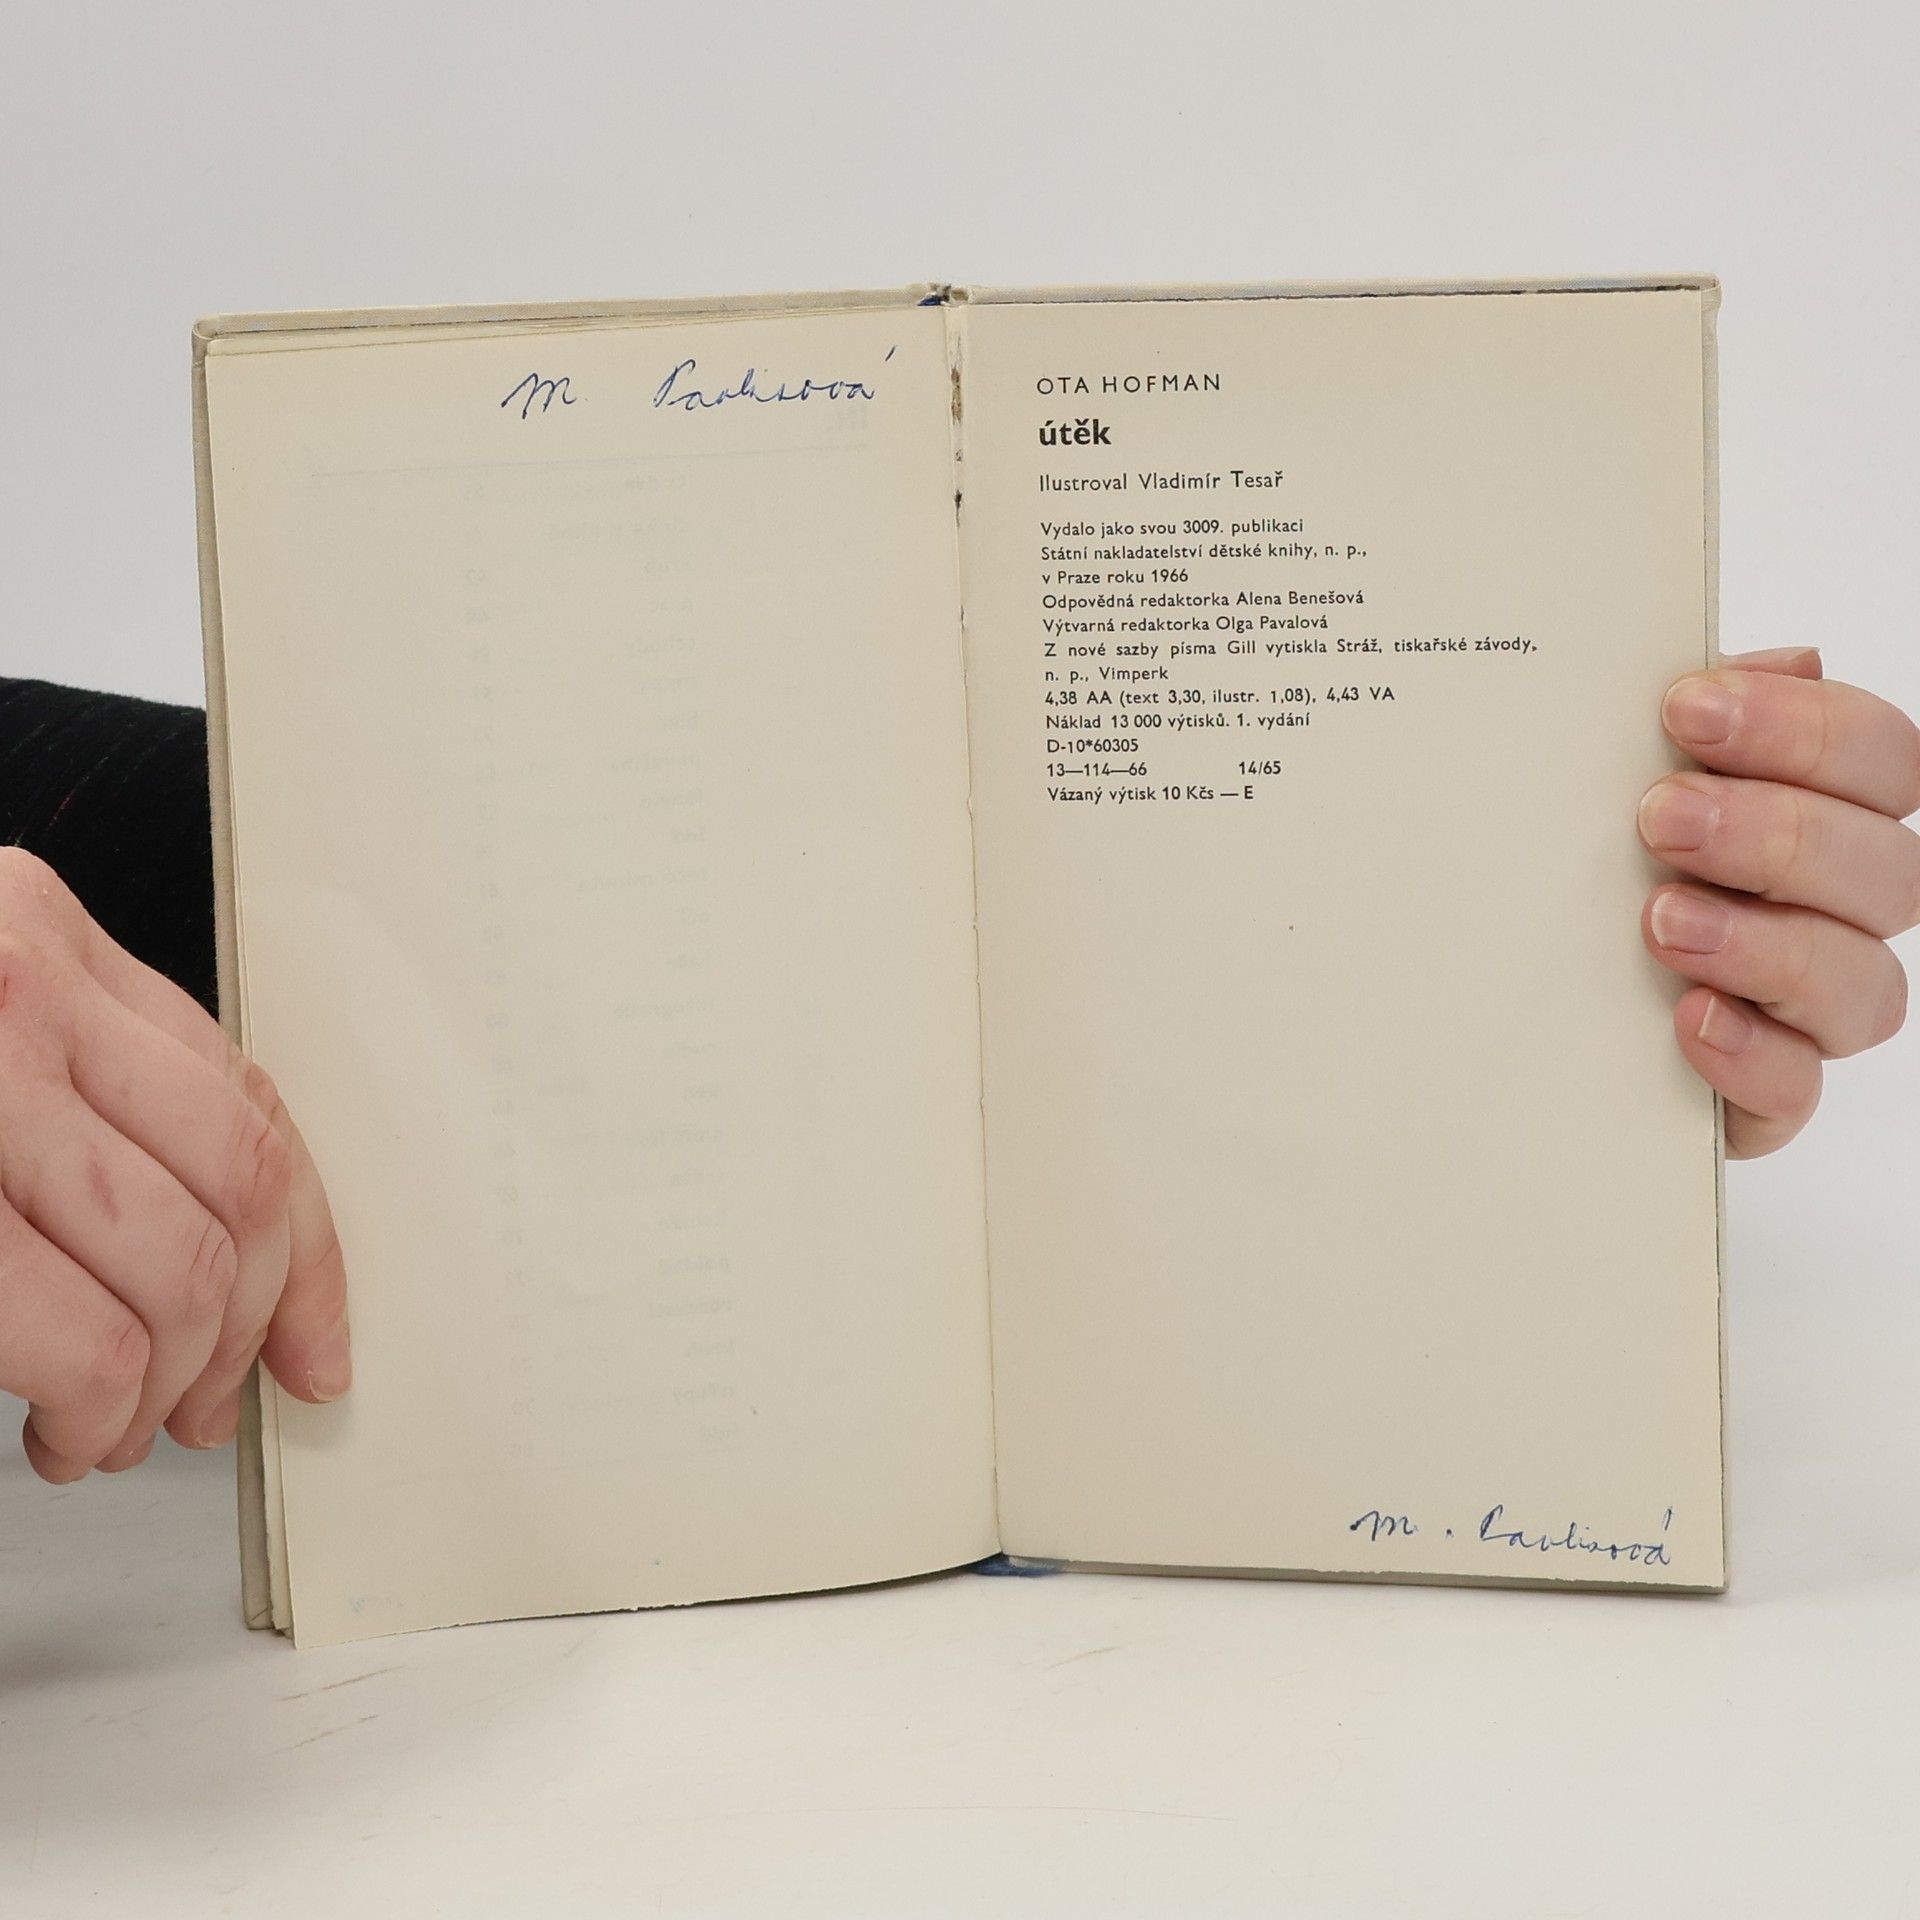 M. Pavlisová
OTA HOFMAN
útěk
Ilustroval Vladimír Tesař
Vydalo jako svou 3009. publikaci
Státní nakladatelství dětské knihy, n. p.,
v Praze roku 1966
Odpovědná redaktorka Alena Benešová
Výtvarná redaktorka Olga Pavalová
Z nové sazby písma Gill vytiskla Stráž, tiskařské závody,
n. p., Vimperk
4,38 AA (text 3,30, ilustr. 1,08), 4,43 VA
Náklad 13 000 výtisků. 1. vydání
D-10*60305
13—114—66 14/65
Vázaný výtisk 10 Kčs — E
M. Pavlisová